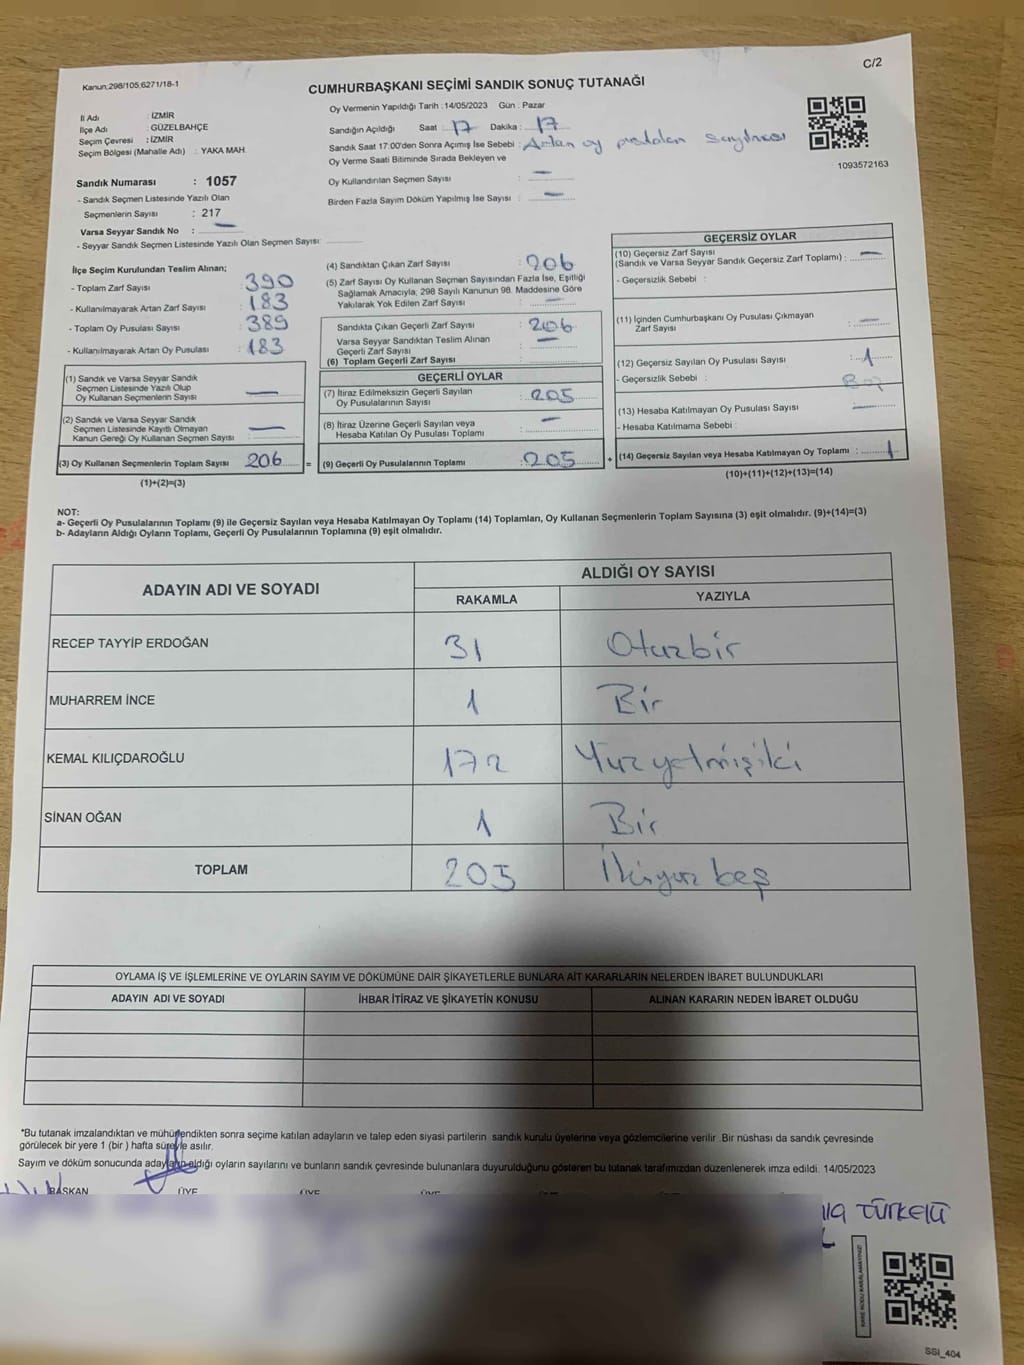 C/2
Kanun;298/105;6271/18-1
CUMHURBAŞKANI SEÇİMİ SANDIK SONUÇ TUTANAĞI
İl Adı : İZMİR
İlçe Adı : GÜZELBAHÇE
Seçim Çevresi : İZMİR
Seçim Bölgesi (Mahalle Adı) : YAKA MAH.
Sandık Numarası : 1057
- Sandık Seçmen Listesinde Yazılı Olan
Seçmenlerin Sayısı : 217
Varsa Seyyar Sandık No : —
- Seyyar Sandık Seçmen Listesinde Yazılı Olan Seçmen Sayısı:
Oy Vermenin Yapıldığı Tarih : 14/05/2023 Gün : Pazar
Sandığın Açıldığı Saat : 17 Dakika : 17
Sandık Saat 17:00'den Sonra Açımış İse Sebebi : Artan oy sayılması
Oy Verme Saati Bitiminde Sırada Bekleyen ve
Oy Kullandırılan Seçmen Sayısı : —
Birden Fazla Sayım Döküm Yapılmış İse Sayısı : —
1093572163
İlçe Seçim Kurulundan Teslim Alınan;
- Toplam Zarf Sayısı : 390
- Kullanılmayarak Artan Zarf Sayısı : 183
- Toplam Oy Pusulası Sayısı : 389
- Kullanılmayarak Artan Oy Pusulası : 183
(1) Sandık ve Varsa Seyyar Sandık
Seçmen Listesinde Yazılı Olup
Oy Kullanan Seçmenlerin Sayısı —
(2) Sandık ve Varsa Seyyar Sandık
Seçmen Listesinde Kayıtlı Olmayan
Kanun Gereği Oy Kullanan Seçmen Sayısı : —
(3) Oy Kullanan Seçmenlerin Toplam Sayısı 206 =
(1)+(2)=(3)
(4) Sandıktan Çıkan Zarf Sayısı : 206
(5) Zarf Sayısı Oy Kullanan Seçmen Sayısından Fazla İse, Eşitliği
Sağlamak Amacıyla; 298 Sayılı Kanunun 98. Maddesine Göre
Yakılarak Yok Edilen Zarf Sayısı : —
Sandıkta Çıkan Geçerli Zarf Sayısı : 206
Varsa Seyyar Sandıktan Teslim Alınan
Geçerli Zarf Sayısı : —
(6) Toplam Geçerli Zarf Sayısı :
GEÇERLİ OYLAR
(7) İtiraz Edilmeksizin Geçerli Sayılan
Oy Pusulalarının Sayısı : 205
(8) İtiraz Üzerine Geçerli Sayılan veya
Hesaba Katılan Oy Pusulası Toplamı : —
(9) Geçerli Oy Pusulalarının Toplamı : 205 +
GEÇERSİZ OYLAR
(10) Geçersiz Zarf Sayısı
(Sandık ve Varsa Seyyar Sandık Geçersiz Zarf Toplamı) : —
- Geçersizlik Sebebi :
(11) İçinden Cumhurbaşkanı Oy Pusulası Çıkmayan
Zarf Sayısı : —
(12) Geçersiz Sayılan Oy Pusulası Sayısı : 1
- Geçersizlik Sebebi : Boş
(13) Hesaba Katılmayan Oy Pusulası Sayısı : —
- Hesaba Katılmama Sebebi :
(14) Geçersiz Sayılan veya Hesaba Katılmayan Oy Toplamı : 1
(10)+(11)+(12)+(13)=(14)
NOT:
a- Geçerli Oy Pusulalarının Toplamı (9) ile Geçersiz Sayılan veya Hesaba Katılmayan Oy Toplamı (14) Toplamları, Oy Kullanan Seçmenlerin Toplam Sayısına (3) eşit olmalıdır. (9)+(14)=(3)
b- Adayların Aldığı Oyların Toplamı, Geçerli Oy Pusulalarının Toplamına (9) eşit olmalıdır.
ADAYIN ADI VE SOYADI ALDIĞI OY SAYISI
RAKAMLA YAZIYLA
RECEP TAYYİP ERDOĞAN 31 Otuzbir
MUHARREM İNCE 1 Bir
KEMAL KILIÇDAROĞLU 172 Yüzyetmişiki
SİNAN OĞAN 1 Bir
TOPLAM 205 İkiyüz beş
OYLAMA İŞ VE İŞLEMLERİNE VE OYLARIN SAYIM VE DÖKÜMÜNE DAİR ŞİKAYETLERLE BUNLARA AİT KARARLARIN NELERDEN İBARET BULUNDUKLARI
ADAYIN ADI VE SOYADI İHBAR İTİRAZ VE ŞİKAYETİN KONUSU ALINAN KARARIN NEDEN İBARET OLDUĞU
*Bu tutanak imzalandıktan ve mühürlendikten sonra seçime katılan adayların ve talep eden siyasi partilerin sandık kurulu üyelerine veya gözlemcilerine verilir .Bir nüshası da sandık çevresinde
görülecek bir yere 1 (bir ) hafta süreyle asılır.
Sayım ve döküm sonucunda adayların aldığı oyların sayılarını ve bunların sandık çevresinde bulunanlara duyurulduğunu gösteren bu tutanak tarafımızdan düzenlenerek imza edildi. 14/05/2023
BAŞKAN ÜYE ÜYE ÜYE
TÜRKELİ
KARE KODU KARALAMAYINIZ!
SSI_404